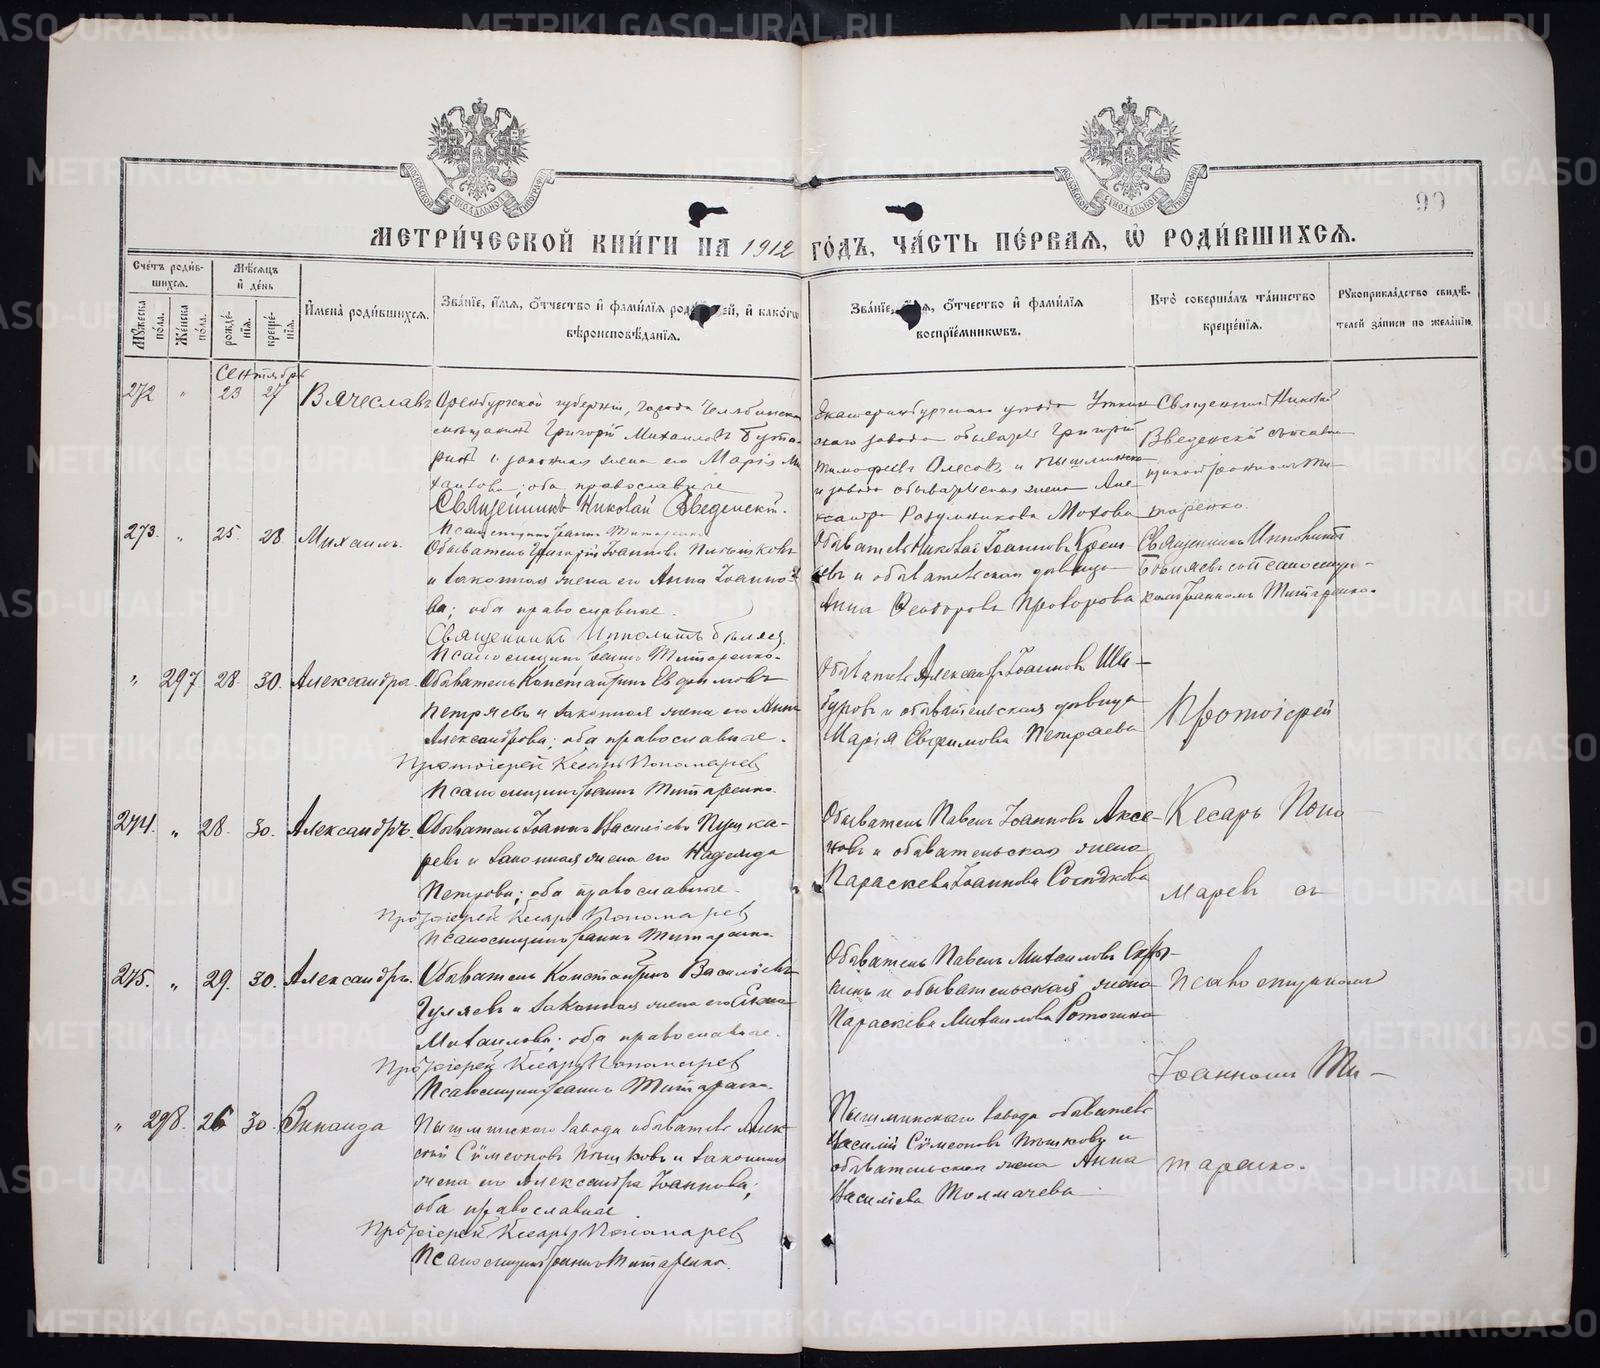 99
МЕТРИ́ЧЕСКОЙ КНИ́ГИ НА 1912 ГО́ДЪ, ЧА́СТЬ ПЕ́РВАЯ, Ѡ РОДИ́ВШИХСЯ.
Сче́тъ роди́в-
шихся.
Му́жеска пола.
Же́нска по́ла.
Мѣ́сяцъ
и҆ де́нь
рожде́-
нїя.
креще́-
нїя.
И҆мена̀ роди́вшихся.
Зва́нїе, и҆́мя, ѻ҆́тчество и҆ фами́лїя роди́телей, и҆ како́гѡ
вѣроисповѣ́данїя.
Зва́нїе, и҆́мя, ѻ҆́тчество и҆ фами́лїя
воспрїе́мникѡвъ.
Кто̀ соверша́лъ та́инство
креще́нїя.
Рꙋкоприкла́дство свидѣ́-
телей за́писи по жела́нїю.
Сентябрь
272 " 23 27 Вячеславъ
Оренбургской губерніи, города Челябинска
мѣщанинъ Григорій Михаиловъ
и законная жена его Марія
оба православные
Священникъ Николай Введенскій.
Псаломщикъ Іоаннъ Титаренко
Екатеринбургскаго уѣзда Уткин
скаго завода обыватель Григорій
Тимофеевъ и Пышминска
го завода обывательская жена Але
ксандра Разумникова Мохова
Священникъ Николай
Введенскій съ псалом
щикомъ Іоанномъ Ти-
таренко.
273. " 25. 28 Михаилъ.
Обыватель Григорій Іоанновъ
и законная жена его Анна Іоанно-
ва; оба православные.
Священникъ Ипполитъ
Псаломщикъ Іоаннъ Титаренко.
Обыватель Николай Іоанновъ
и обывательская дѣвица
Анна Ѳеодорова Прохорова
Священникъ Ипполитъ
съ псаломщи-
комъ Іоанномъ Титаренко.
" 297 28. 30. Александра.
Обыватель Константинъ Евфимовъ
Петряевъ и законная жена его Анна
Александрова; оба православные.
Протоіерей Кесарь Пономаревъ
Псаломщикъ Іоаннъ Титаренко.
Обыватель Александръ Іоанновъ Ши-
и обывательская дѣвица
Марія Евфимова Петряева
Протоіерей
274. " 28. 30. Александръ.
Обыватель Іоаннъ Василіевъ Пушка-
ревъ и законная жена его Надежда
Петрова; оба православные.
Протоіерей Кесарь Пономаревъ
Псаломщикъ Іоаннъ Титаренко
Обыватель Павелъ Іоанновъ Аксе-
новъ и обывательская жена
Параскева Іоаннова
Кесарь Поно-
маревъ съ
275. " 29. 30. Александръ.
Обыватель Константинъ Василіевъ
Гуляевъ и законная жена его Елена
Михаилова; оба православные.
Протоіерей Кесарь Пономаревъ
Псаломщикъ Іоаннъ Титаренко.
Обыватель Павелъ Михаиловъ
и обывательская жена
Параскева Михаилова
псаломщикомъ
Іоанномъ Ти-
" 298. 26 30. Зинаида
Пышминскаго завода обыватель Алек
сѣй Сѵмеоновъ Пышковъ и законная
жена его Александра Іоаннова;
оба православные
Протоіерей Кесарь Пономаревъ
Псаломщикъ Іоаннъ Титаренко.
Пышминскаго завода обыватель
Василій Сѵмеоновъ Пышковъ и
обывательская жена Анна
Василіева Толмачева.
таренко.
METRIKI.GASO-URAL.RU